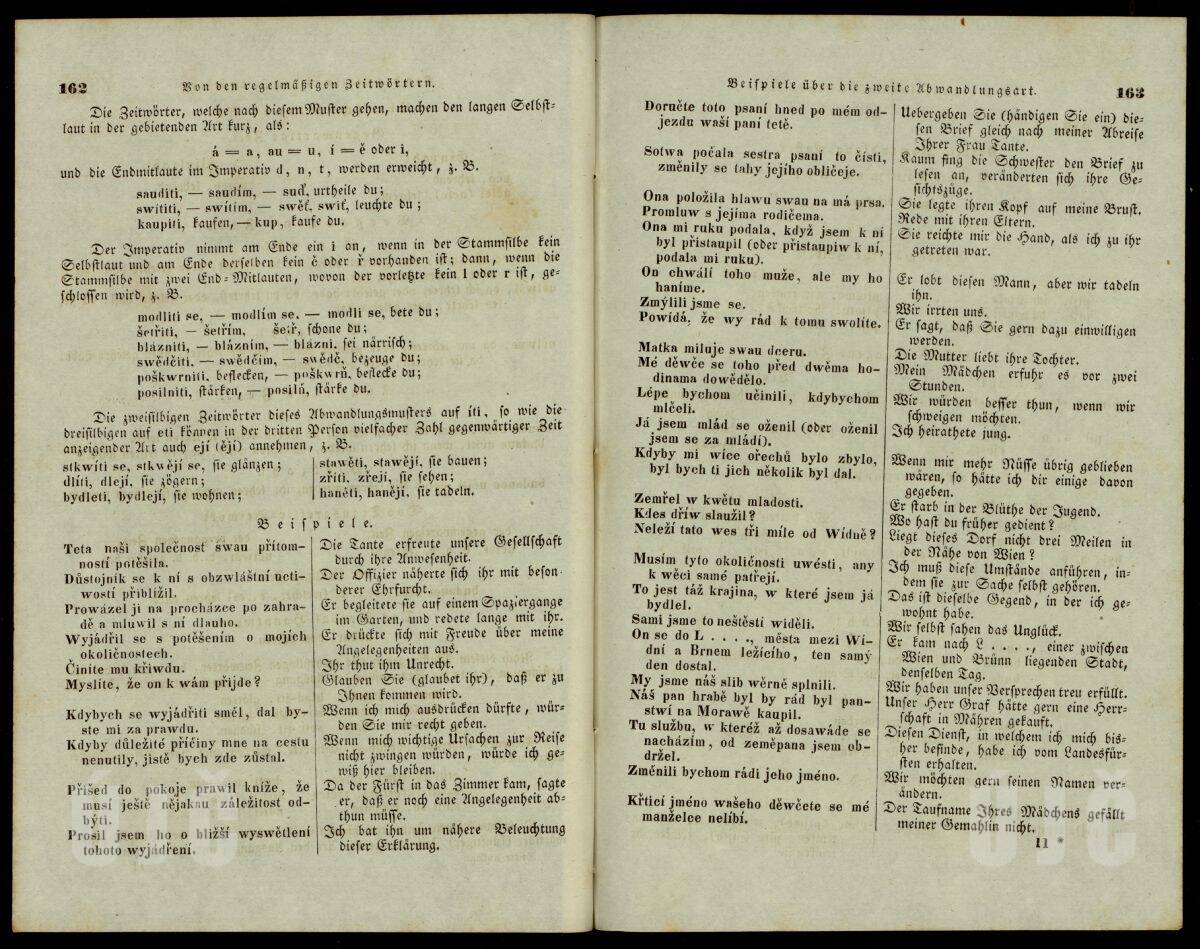 162 Von den regelmäßigen Zeitwörtern.
Die Zeitwörter, welche nach diesem Muster gehen, machen den langen Selbst-
laut in der gebietenden Art kurz, als:
á = a, au = u, í = ě oder i,
und die Endmitlaute im Imperativ d, n, t, werden erweicht, z. B.
sauditi, — saudím, — suď, urtheile du;
swítiti, — swítím, — swěť, swiť, leuchte du;
kaupiti, kaufen, — kup, kaufe du.
Der Imperativ nimmt am Ende ein i an, wenn in der Stammsilbe kein
Selbstlaut und am Ende derselben kein č oder ř vorhanden ist; dann, wenn die
Stammsilbe mit zwei End-Mitlauten, wovon der vorletzte kein l oder r ist, ge-
schlossen wird, z. B.
modliti se, — modlím se, — modli se, bete du;
šetřiti, — šetřím, šetř, schone du;
blázniti, — blázním, — blázni, sei närrisch;
swědčiti, — swědčím, — swědč, bezeuge du;
poškwrniti, beflecken, — poškwrň, beflecke du;
posilniti, stärken, — posilň, stärke du.
Die zweisilbigen Zeitwörter dieses Abwandlungsmusters auf íti, so wie die
dreisilbigen auf eti können in der dritten Person vielfacher Zahl gegenwärtiger Zeit
anzeigender Art auch ejí (ějí) annehmen, z. B.
stkwíti se, stkwějí se, sie glänzen;
dlíti, dlejí, sie zögern;
bydleti, bydlejí, sie wohnen;
stawěti, stawějí, sie bauen;
zříti, zřejí, sie sehen;
haněti, hanějí, sie tadeln.
Beispiele.
Teta naši společnost swau přítom-
ností potěšila.
Důstojník se k ní s obzwláštní ucti-
wostí přiblížil.
Prowázel ji na procházce po zahra-
dě a mluwil s ní dlauho.
Wyjádřil se s potěšením o mojích
okoličnostech.
Činíte mu křiwdu.
Myslíte, že on k wám přijde?
Kdybych se wyjádřiti směl, dal by-
ste mi za prawdu.
Kdyby důležité příčiny mne na cestu
nenutily, jistě bych zde zůstal.
Přišed do pokoje prawil kníže, že
musí ještě nějakau záležitost od-
býti.
Prosil jsem ho o bližší wyswětlení
tohoto wyjádření.
Die Tante erfreute unsere Gesellschaft
durch ihre Anwesenheit.
Der Offizier näherte sich ihr mit beson-
derer Ehrfurcht.
Er begleitete sie auf einem Spaziergange
im Garten, und redete lange mit ihr.
Er drückte sich mit Freude über meine
Angelegenheiten aus.
Ihr thut ihm Unrecht.
Glauben Sie (glaubet ihr), daß er zu
Ihnen kommen wird.
Wenn ich mich ausdrücken dürfte, wür-
den Sie mir recht geben.
Wenn mich wichtige Ursachen zur Reise
nicht zwingen würden, würde ich ge-
wiß hier bleiben.
Da der Fürst in das Zimmer kam, sagte
er, daß er noch eine Angelegenheit ab-
thun müsse.
Ich bat ihn um nähere Beleuchtung
dieser Erklärung.
Beispiele über die zweite Abwandlungsart. 163
Doručte toto psaní hned po mém od-
jezdu waší paní tetě.
Sotwa počala sestra psaní to čísti,
změnily se tahy jejího obličeje.
Ona položila hlawu swau na má prsa.
Promluw s jejíma rodičema.
Ona mi ruku podala, když jsem k ní
byl přistaupil (oder přistaupiw k ní,
podala mi ruku).
On chwálí toho muže, ale my ho
haníme.
Zmýlili jsme se.
Powídá, že wy rád k tomu swolíte.
Matka miluje swau dceru.
Mé děwče se toho před dwěma ho-
dinama dowědělo.
Lépe bychom učinili, kdybychom
mlčeli.
Já jsem mlád se oženil (oder oženil
jsem se za mládí).
Kdyby mi wíce ořechů bylo zbylo,
byl bych ti jich několik byl dal.
Zemřel w kwětu mladosti.
Kdes dříw slaužil?
Neleží tato wes tři míle od Wídně?
Musím tyto okoličnosti uwésti, any
k wěci samé patřejí.
To jest táž krajina, w které jsem já
bydlel.
Sami jsme to neštěstí widěli.
On se do L . . . ., města mezi Wí-
dní a Brnem ležícího, ten samý
den dostal.
My jsme náš slib wěrně splnili.
Náš pan hrabě byl by rád byl pan-
stwí na Morawě kaupil.
Tu službu, w kteréž až dosawáde se
nacházím, od zeměpana jsem ob-
držel.
Změnili bychom rádi jeho jméno.
Křticí jméno wašeho děwčete se mé
manželce nelíbí.
Uebergeben Sie (händigen Sie ein) die-
sen Brief gleich nach meiner Abreise
Ihrer Frau Tante.
Kaum fing die Schwester den Brief zu
lesen an, veränderten sich ihre Ge-
sichtszüge.
Sie legte ihren Kopf auf meine Brust.
Rede mit ihren Eltern.
Sie reichte mir die Hand, als ich zu ihr
getreten war.
Er lobt diesen Mann, aber wir tadeln
ihn.
Wir irrten uns.
Er sagt, daß Sie gern dazu einwilligen
werden.
Die Mutter liebt ihre Tochter.
Mein Mädchen erfuhr es vor zwei
Stunden.
Wir würden besser thun, wenn wir
schweigen möchten.
Ich heirathete jung.
Wenn mir mehr Nüsse übrig geblieben
wären, so hätte ich dir einige davon
gegeben.
Er starb in der Blüthe der Jugend.
Wo hast du früher gedient?
Liegt dieses Dorf nicht drei Meilen in
der Nähe von Wien?
Ich muß diese Umstände anführen, in-
dem sie zur Sache selbst gehören.
Das ist dieselbe Gegend, in der ich ge-
wohnt habe.
Wir selbst sahen das Unglück.
Er kam nach L . . . ., einer zwischen
Wien und Brünn liegenden Stadt,
denselben Tag.
Wir haben unser Versprechen treu erfüllt.
Unser Herr Graf hätte gern eine Herr-
schaft in Mähren gekauft.
Diesen Dienst, in welchem ich mich bis-
her befinde, habe ich vom Landesfür-
sten erhalten.
Wir möchten gern seinen Namen ver-
ändern.
Der Taufname Ihres Mädchens gefällt
meiner Gemahlin nicht.
11 *